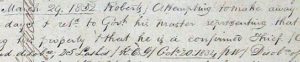 March 29. 1832 Roberts / Attempting to make away
days & retd. to Govt his master representing that
property & that he is a confirmed Thief /
25 Lashes / P.C.S / Octr. 20. 1834 / PW / Disob. of